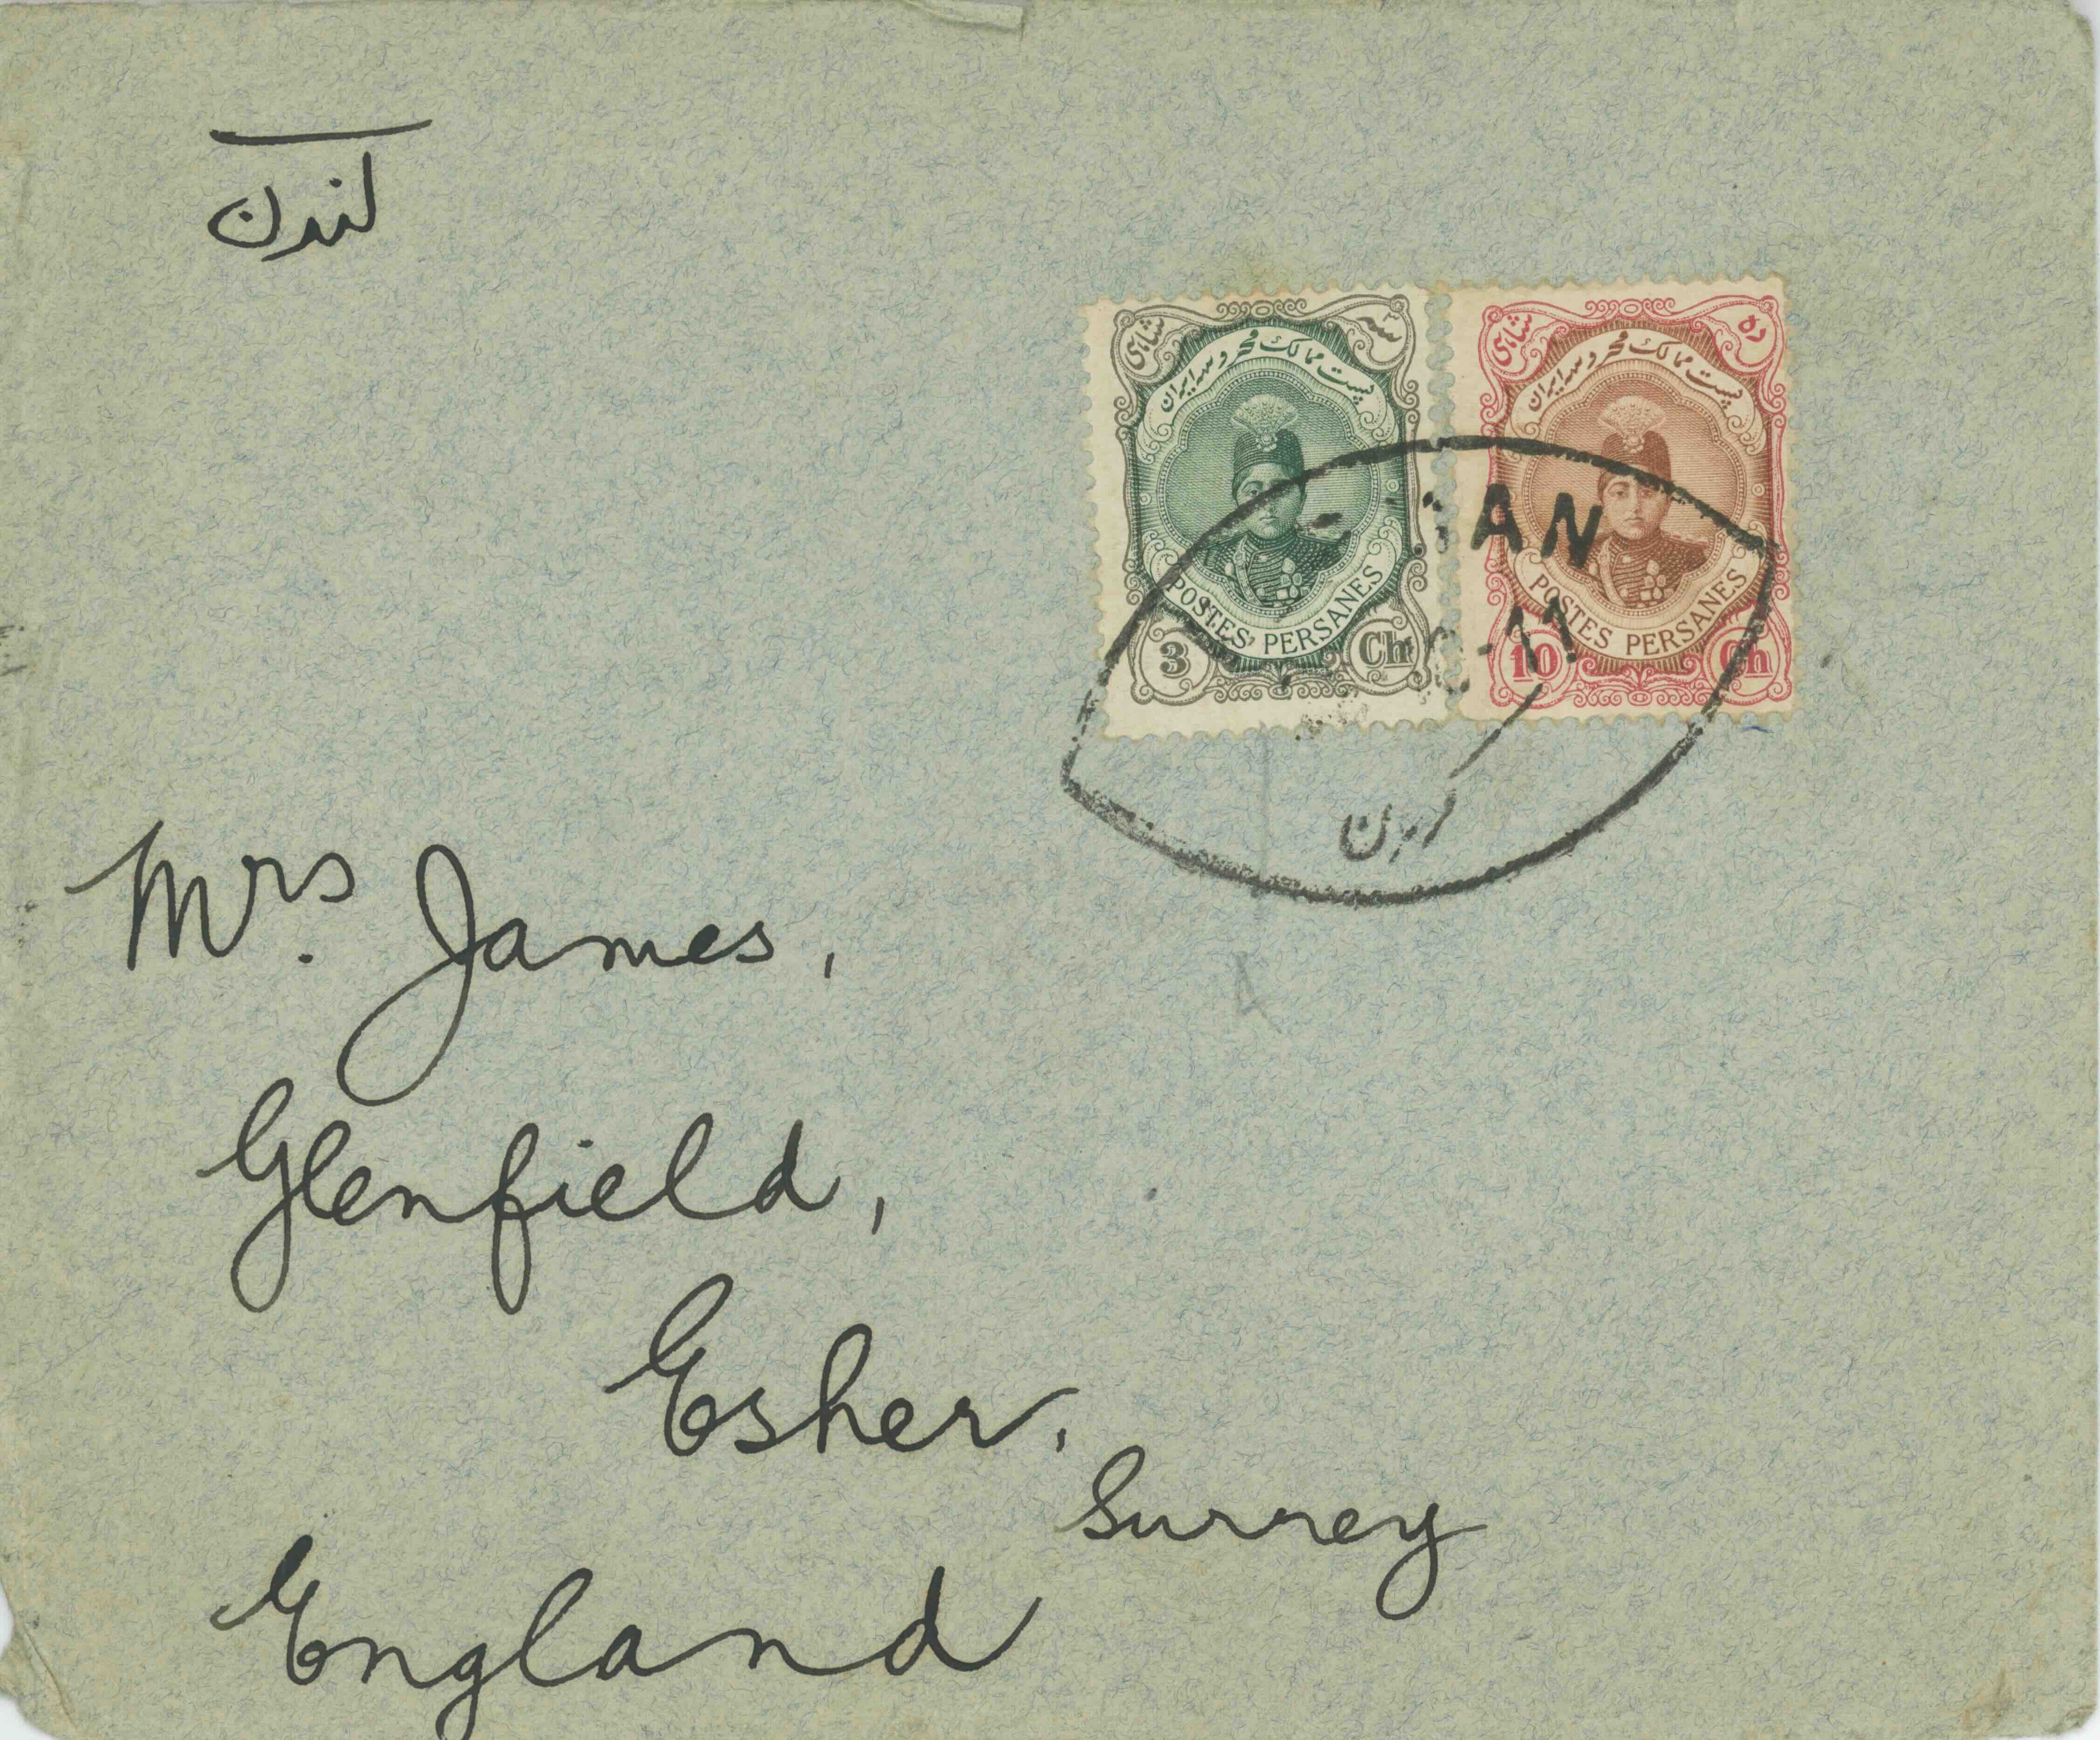 لندن
سه شاهی
پست ممالک محروسه ایران
POSTES PERSANES
3 Ch
ده شاهی
پست ممالک محروسه ایران
POSTES PERSANES
10 Ch
Mrs. James,
Glenfield,
Esher,
Surrey
England